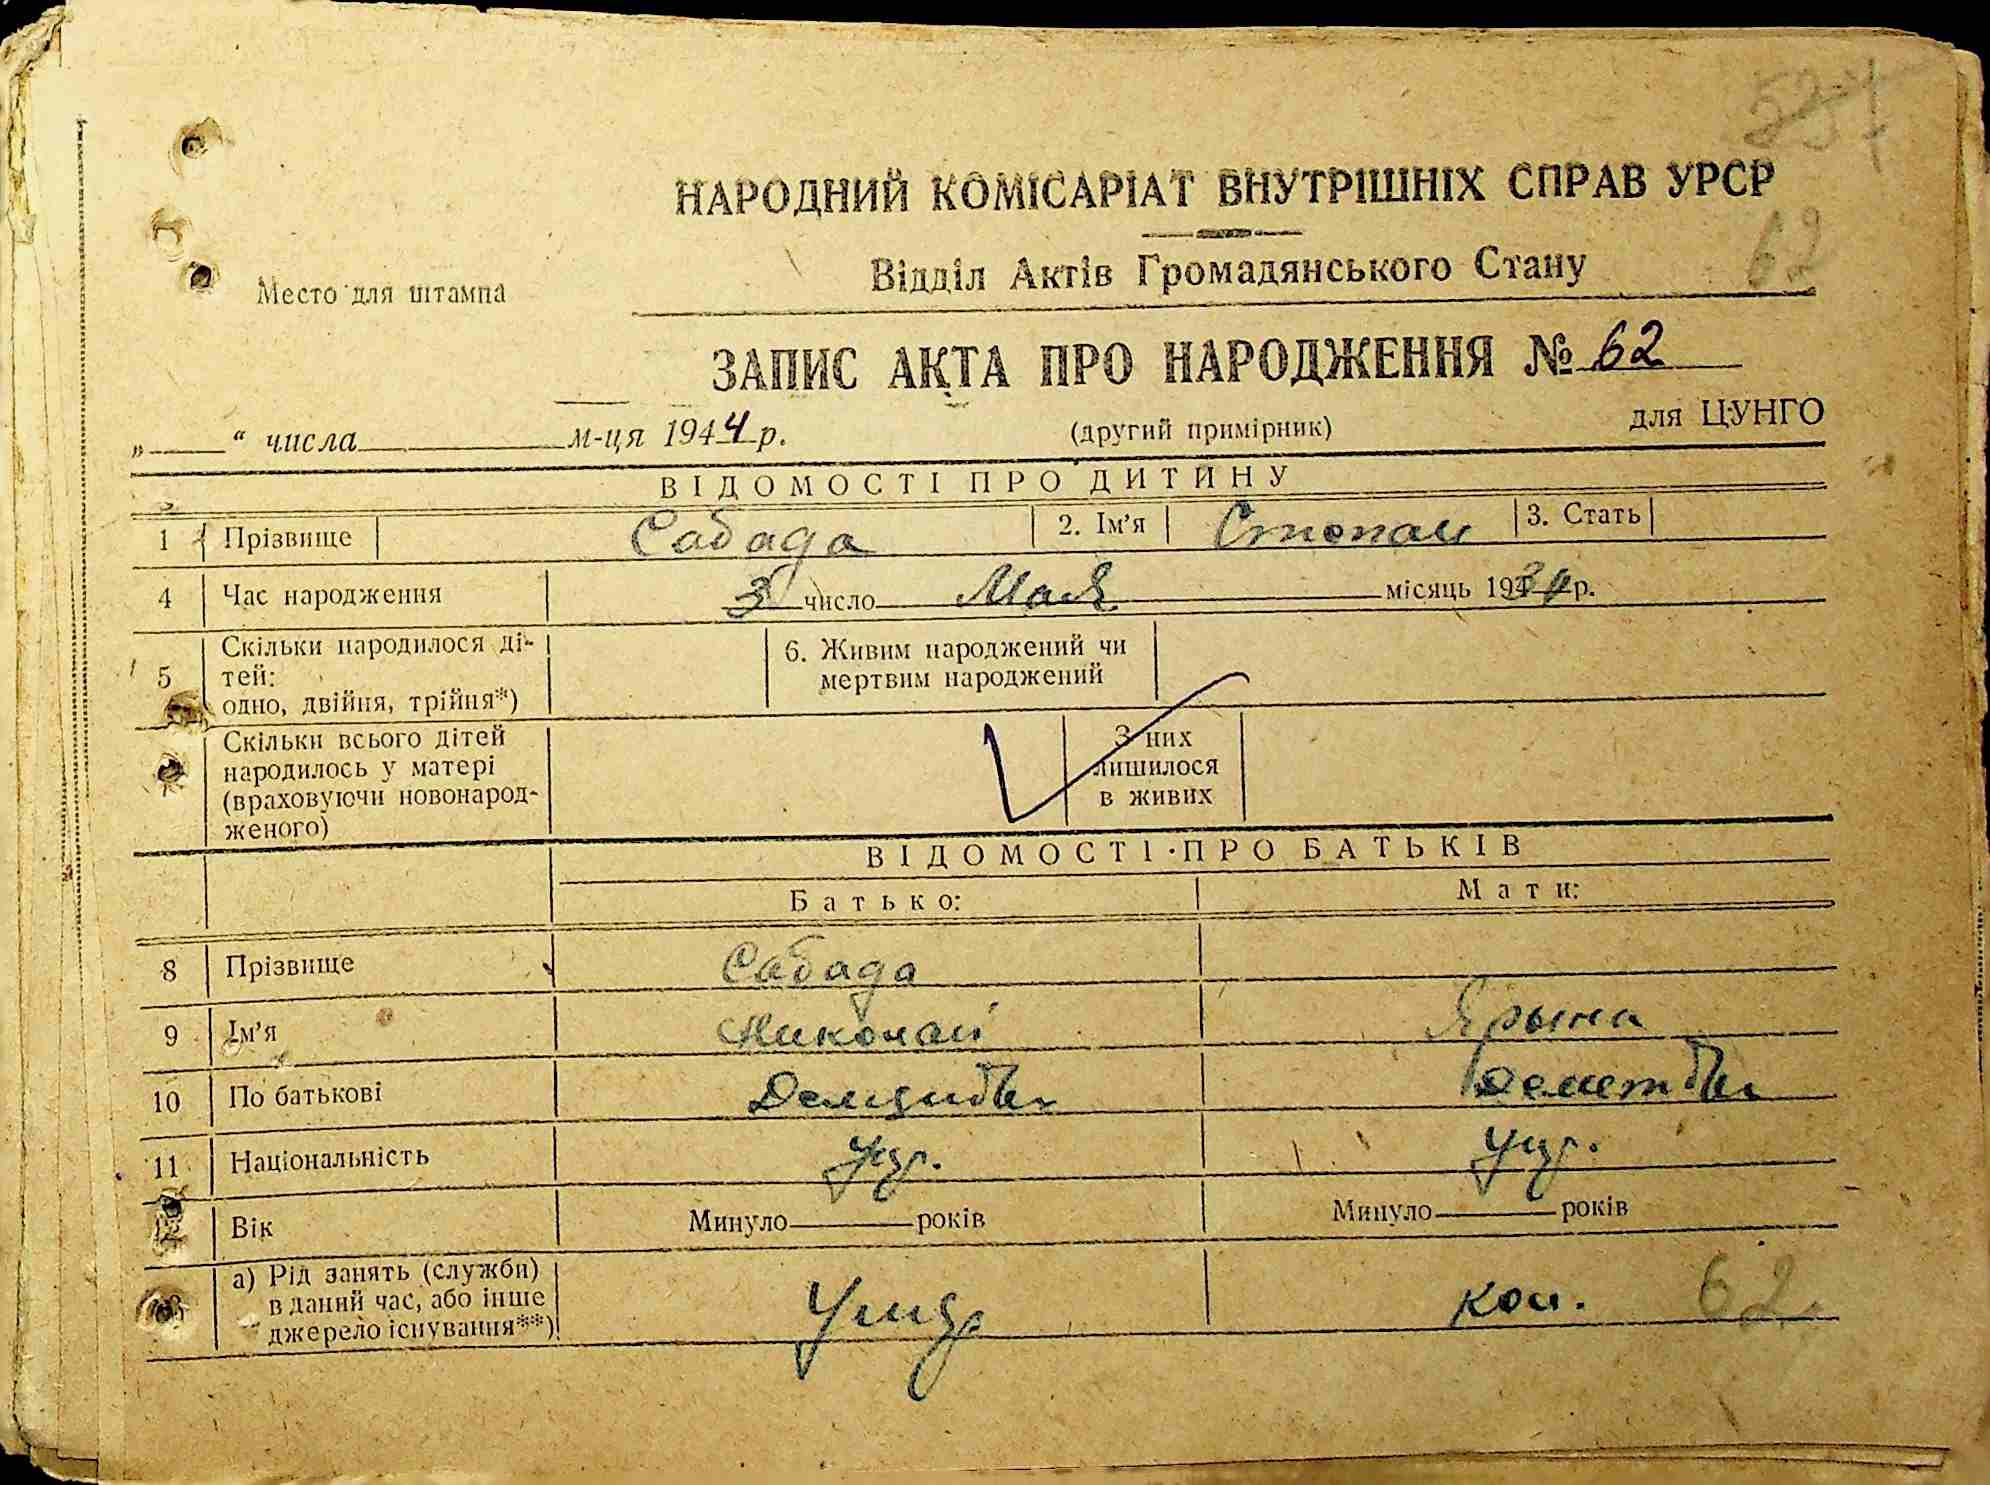 537
НАРОДНИЙ КОМІСАРІАТ ВНУТРІШНІХ СПРАВ УРСР
62
Место для штампа
Відділ Актів Громадянського Стану
ЗАПИС АКТА ПРО НАРОДЖЕННЯ № 62
„ “ числа м-ця 1944 р. (другий примірник) для ЦУНГО
ВІДОМОСТІ ПРО ДИТИНУ
1 Прізвище Сабада 2. Ім'я Степан 3. Стать
4 Час народження 3 число Мая місяць 1934 р.
5 Скільки народилося ді-
тей:
одно, двійня, трійня*)
6. Живим народжений чи
мертвим народжений
Скільки всього дітей
народилось у матері
(враховуючи новонарод-
женого)
З них
лишилося
в живих
ВІДОМОСТІ ПРО БАТЬКІВ
Батько: Мати:
8 Прізвище Сабада
9 Ім'я Николай Ярына
10 По батькові
11 Національність укр. укр.
12 Вік Минуло років Минуло років
13 а) Рід занять (служби)
в даний час, або інше
джерело існування**)
кол. 62.